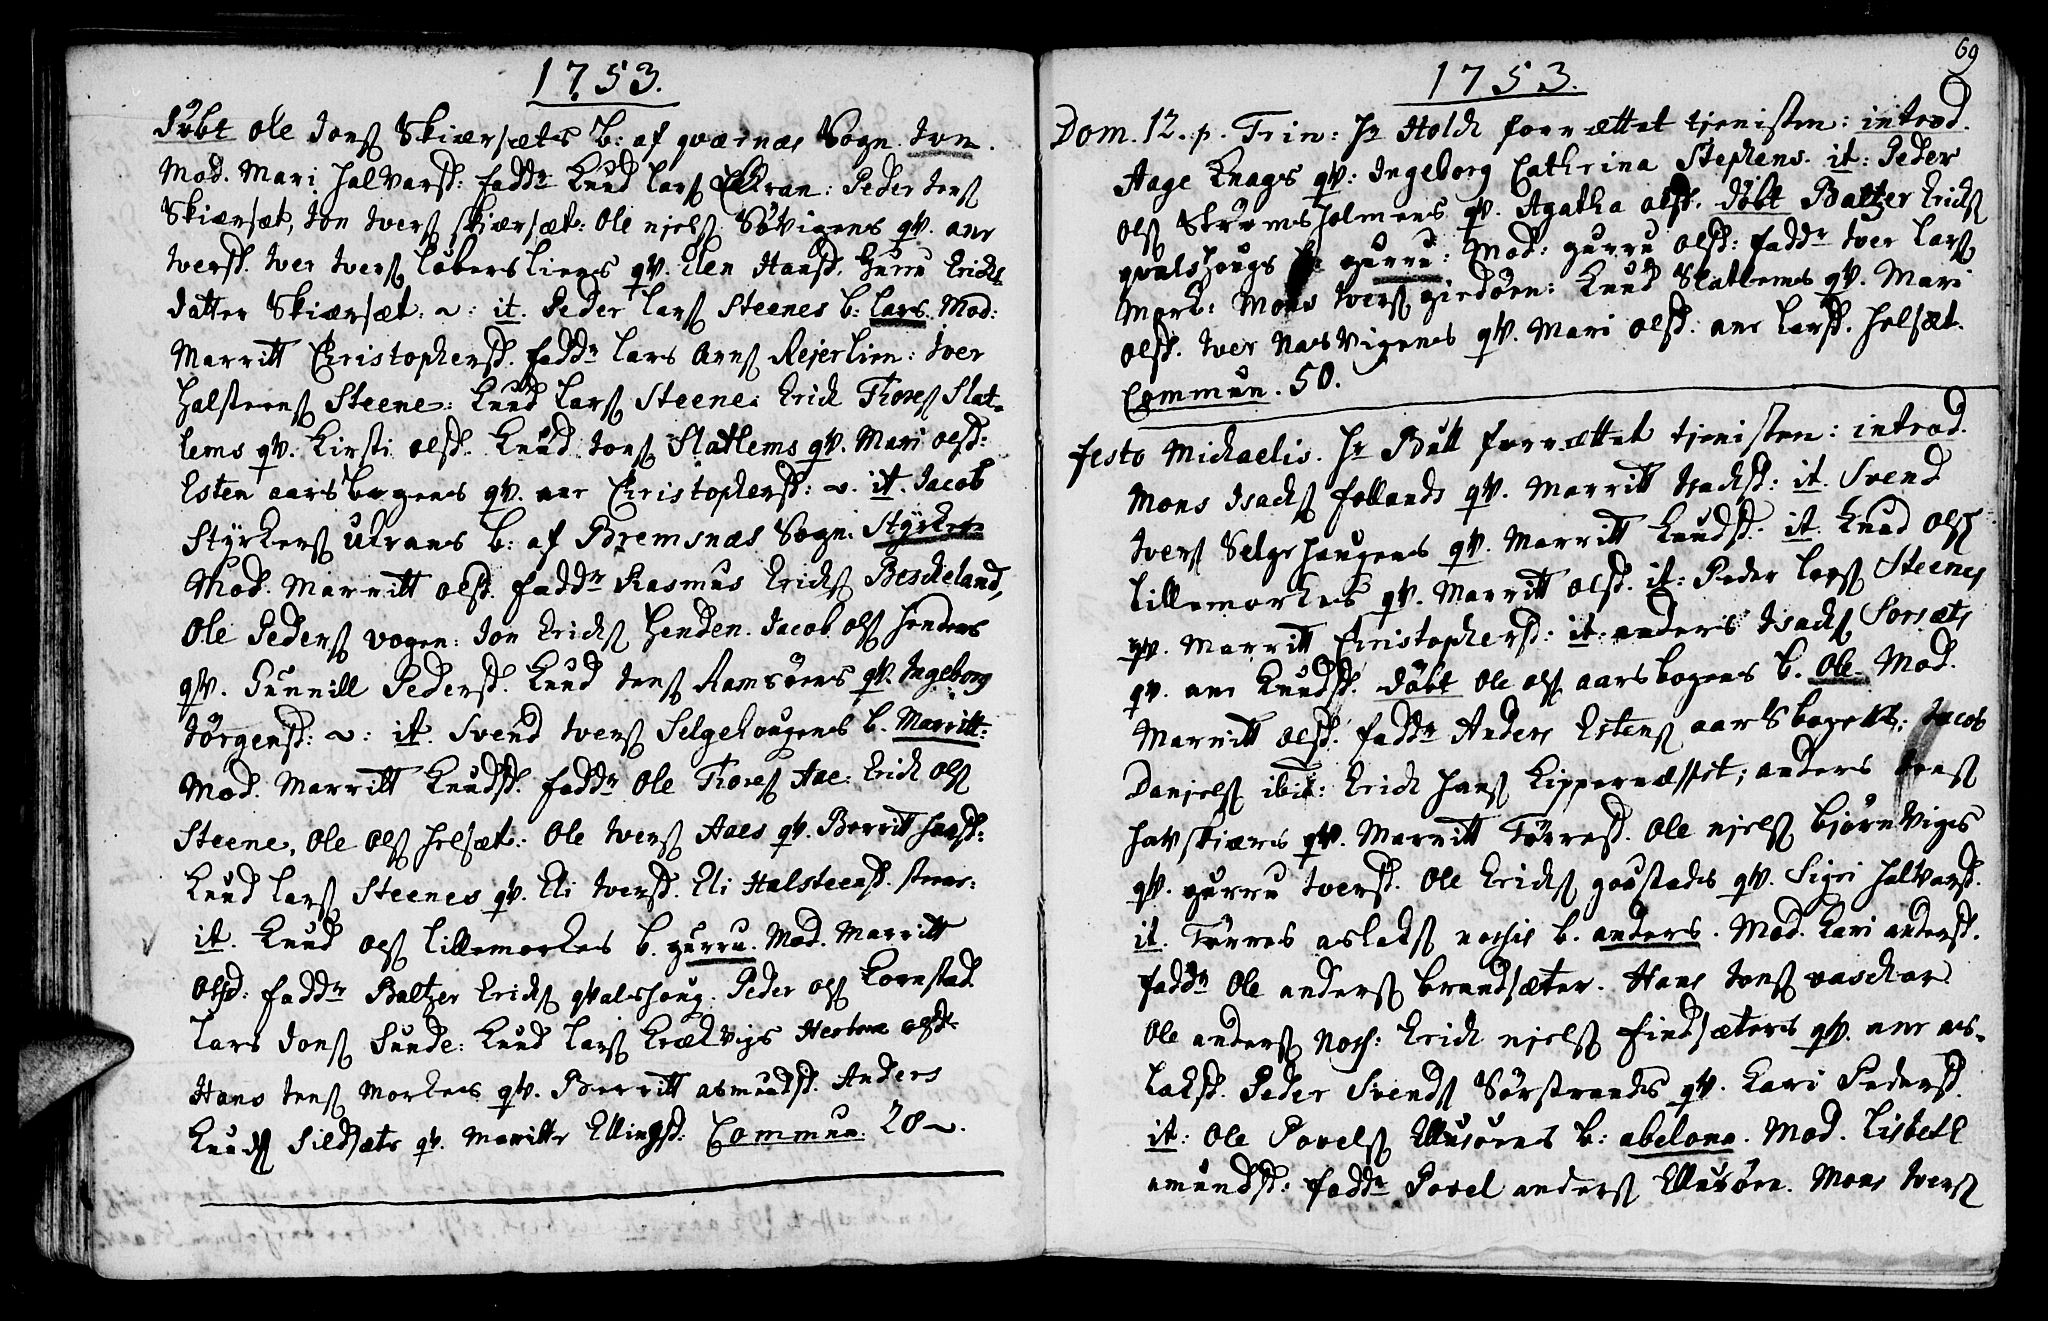 1753.
døbt Ole Jonſ Skiærſæts b: af qværnes Sogn. Jon.
Mod. Mari Halvarsd: faddr Knud Larſ Ekran: Peder Jenſ
Skiærsæt, Jon Iverſ Skiærſæt: Ole Njelſ Søvigens qv. ane
Iversd. Iver Iverſ Løbersliens qv. Elen Hansd. Gurru Erichs
datter Skiærſæt: ~: it. Peder Larſ Steenes b: Lars. Mod:
Marritt Christophersd. faddr Lars Arnſ Rejerlien: Iver
Halsteenſ Steene: Knud Larſ Steene: Erich Thoreſ Slat-
lems qv. Kirsti olsd. Knud Jonſ Slatlems qv. Mari olsd:
Esten aarsbogens qv. ane Christophersd: ~. it. Jacob
Styrkerſ Ukrans b: af Bremsnæs Sogn: Styrker
Mod. Marritt olsd. faddr Rasmus Erichſ Bescheland,
Ole Pederſ vogen: Jon Erichſ Henden. Jacob olſ Hendens
qv. Gunnill Pedersd. Knud Jenſ Ramsøens qv. Ingeborg
Jørgensd: ~: it. Svend Iverſ Selgehougens b. Marritt:
Mod. Marritt Knudsd. faddr Ole Thoreſ Aae: Erich olſ
Steene, Ole Olſ Helſæt: Ole Iverſ Aaes qv. Berritt Hansd:
Knud Larſ Steenes qv. Eli Iversd. Eli Halsteensd. steene:
it. Knud olſ Lillemorkes b. gurru. Mod. Marritt
Olsd: faddr Baltzer Erichſ qvalshoug. Peder olſ Kornstad
Lars Jonſ Sunde: Knud Larſ Krækvigs olsd
Hans Jenſ Morkes qv. Berritt asmundsd. Anders
Knudſ Sildſæts qv. Marritte Ellingsd: Commun. 28 ~.
69
1753.
Dom. 12. p. Trin: Hr Holck forrættet tjenisten: introd.
Aage Knags qv: Ingeborg Cathrina Stephens. it: Peder
olſ Strømsholmens qv. Agatha olsd. døbt Baltzer Erichſ
qvalshougs gurru: Mod: gurru olsd: faddr Iver Larſ
Mork: Mons Iverſ giedøen: Knud Slatlems qv. Mari
olsd. Iver Nasvigens qv. Mari olsd: ane Larsd. Helſæt.
Commun. 50.
festo Michaelis. Hr Bull forrættet tjenisten: introd.
Mons Isachſ follands qv. Marritt Isachsd: it. Svend
Iverſ Selgehaugens qv. Marritt Knudsd. it. Knud Olſ
Lillemorkes qv. Marritt olsd. it: Peder Larſ Steenes
qv. Marritt Christophersd: it: anders Isachſ Sorsæts
qv. ane Knudsd. døbt Ole olſ aarsbogens b. Ole. Mod.
Marritt olsd. faddr Anders Estenſ aarsbogen: Jacob
Danjelſ ibid: Erich Hanſ Kippernæsset; anders Jenſ
Havskiærs qv. Marritt Tørresd. Ole Njelſ Bjørnvigs
qv. gurru Iversd. Ole Erichſ goustads qv. Sigri Halvorsd.
it. Tørres aslakſ b. anders. Mod. Kari andersd.
faddr Ole anderſ Brandſæter. Hans Jonſ vaschar
Ole anderſ Erich Njelſ Findſæters qv. ane as-
laksd. Peder Svendſ Sørstrands qv. Kari Pedersd.
it: Ole Povelſ Ellusøens b: abelona. Mod. Lisbeth
amundsd: faddr Povel anderſ Ellusøen. Mons Iverſ